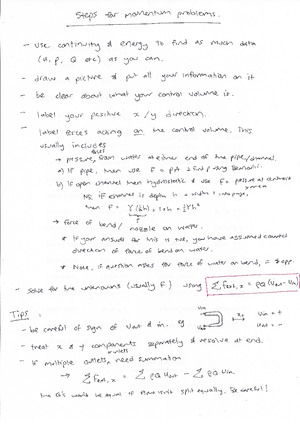 Steps for momentum problems.
- use continuity & energy to find as much data
(u, p, Q etc) as you can.
- draw a picture & put all your information on it
- be clear about what your control volume is.
- label your positive x/y direction.
- label forces acting on the control volume. This
usually includes
→ pressure from water at either end of the pipe/channel.
a) If pipe, then use F = pA & find p using Bernoulli.
b) If open channel then hydrostatic & use F = pressure at centroid
then F =
→ force of bend/nozzle on water.
* If your answer for this is +ve, you have assumed correct
direction of force of bend on water.
* Note, if question asks for force of water on bend, = & opp.
- solve for the unknowns (usually F) using ΣFext,x = ρQ(Uout - Uin)
Tips:
- be careful of sign of Uout & in. eg Uin Uout x→ Uin = + Uout = -
- treat x & y components separately & resolve at end.
- If multiple outlets/inlets, need summation
→ ΣFext,x = ΣρQ Uout - ΣρQ Uin
the Q's won't be equal if flow isn't split equally. Be careful!